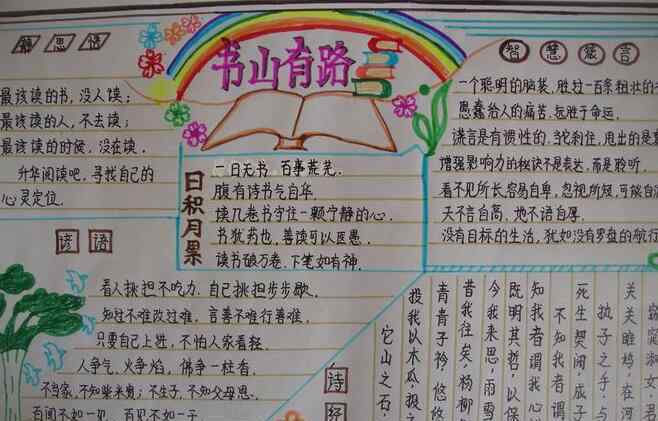 书山有路
解思语
最该读的书,没人读;
最该读的人,不去读;
最该读的时候,没在读.
升华阅读吧,寻找自己的
心灵定位.
日积月累
一日无书 百事荒芜.
腹有诗书气自华.
读几卷书守住一颗宁静的心.
书犹药也,善读可以医愚.
读书破万卷.下笔如有神.
智慧箴言
一个聪明的脑袋,胜过一百条粗壮的
愚蠢给人的痛苦,远胜于命运.
谎言是有惯性的,当你刹住,甩出的是
增强影响力的秘诀不是表达,而是聆听.
看不见所长,容易自卑,忽视所短,可能自
天不言自高,地不语自厚.
没有目标的生活,犹如没有罗盘的航行
谚语
看人挑担不吃力,自己挑担步步歇.
知过不难改过难,言善不难行善难.
只要自己上进,不怕人家看轻.
人争气,火争焰,佛争一柱香.
不当家,不知柴米贵;不生子,不知父母恩.
百闻不如一见,百见不如一干
诗经
窈窕淑女,君
关关雎鸠,在河
执子之手,与
死生契阔,成
不知我者谓
知我者谓我心
既明其哲,以保
今我来思,雨雪
昔我往矣,杨柳
青青子衿,悠悠
投我以木瓜,报
它山之石,